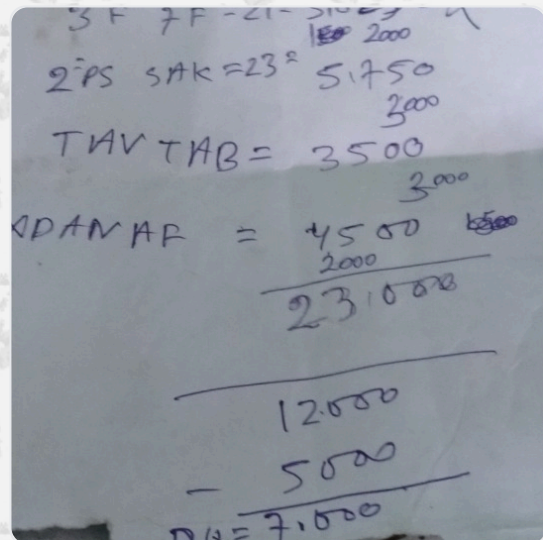 3F 7F = 21 =
2000
2 PS SAK = 23 = 5.750
3000
TAV TAB = 3500
3000
ADANAF = 4500
2000
23.000
12.000
- 5000
= 7.000